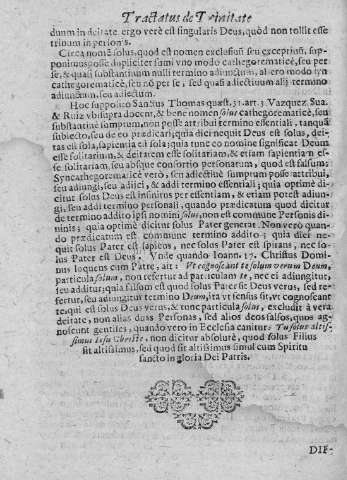 Tractatus de Trinitate
duum in deitate ergo verè est singularis Deus, quòd non tollit esse
trinum in person's.
Circa nomẽ solus, quod est nomen exclusiũ seu exceptiuũ, sup-
ponimus posse dupliciter sumi vno modo cathegorematicè, seu per
se, & quasi substantiuum nulli termino adiunctum, alero modo syn
cathegorematicè, seu nõ per se, sed quasi adiectiuũ alij termino
adiunctum, seu adiectum.
Hoc supposito Sanctus Thomas quæst. 31. art. 3. Vazquez Sua.
& Ruiz vbi supra docent, & bene nomen solus cathegorematicè, seu
substantiuè sumptum, non posse attribui termino essentiali, tanquã
subiecto, seu de eo prædicari; quia dici nequit Deus est solus, dei-
tas est sola, sapientia est sola; quia tunc eo nomine significat Deum
esse solitarium, & deitatem esse solitariam, & etiam sapientiam es-
se solitariam, seu absque consortio personarum, quod est falsum:
Syncathegorematicè verò, seu adiectiuè sumptum posse attribui,
seu adiungi, seu adiici, & addi termino essentiali; quia optimè di-
citur solus Deus est insinitus per essentiam, & etiam potest adiun-
gi, seu addi termino personali, quando prædicatum quod dicitur
de termino addito ipsi nomini solus, non est commune Personis di-
uinis; quia optimè dicitur solus Pater generat. Non verò quan-
do prædicatum est commune termino addito; quia dici ne-
quit solus Pater est sapiens, nec solus Pater est spirans, nec so-
lus Pater est Deus. Vnde quando Ioann. 17. Christus Domi-
nus loquens cum Patre, ait: Vt cognoscant te solum verum Deum,
particula solum, non refertur ad particulam te, nec ei adiungitur,
seu additur; quia sensus est quod solus Pater sit Deus verus, sed re-
fertur, seu adiungitur termino Deum, ita vt sensus sit, vt cognoscant
te, qui est solus Deus verus, & tunc particula solus, excludit à vera
deitate, non alias duas Personas, sed alios deos falsos, quos ag-
noscunt gentiles; quando vero in Ecclesia canitur: Tu solus altis-
simus Iesu Christe, non dicitur absolutè, quod solus Filius
sit altissimus, sed quod sit altissimus simul cum Spiritu
sancto in gloria Dei Patris.
DIF-